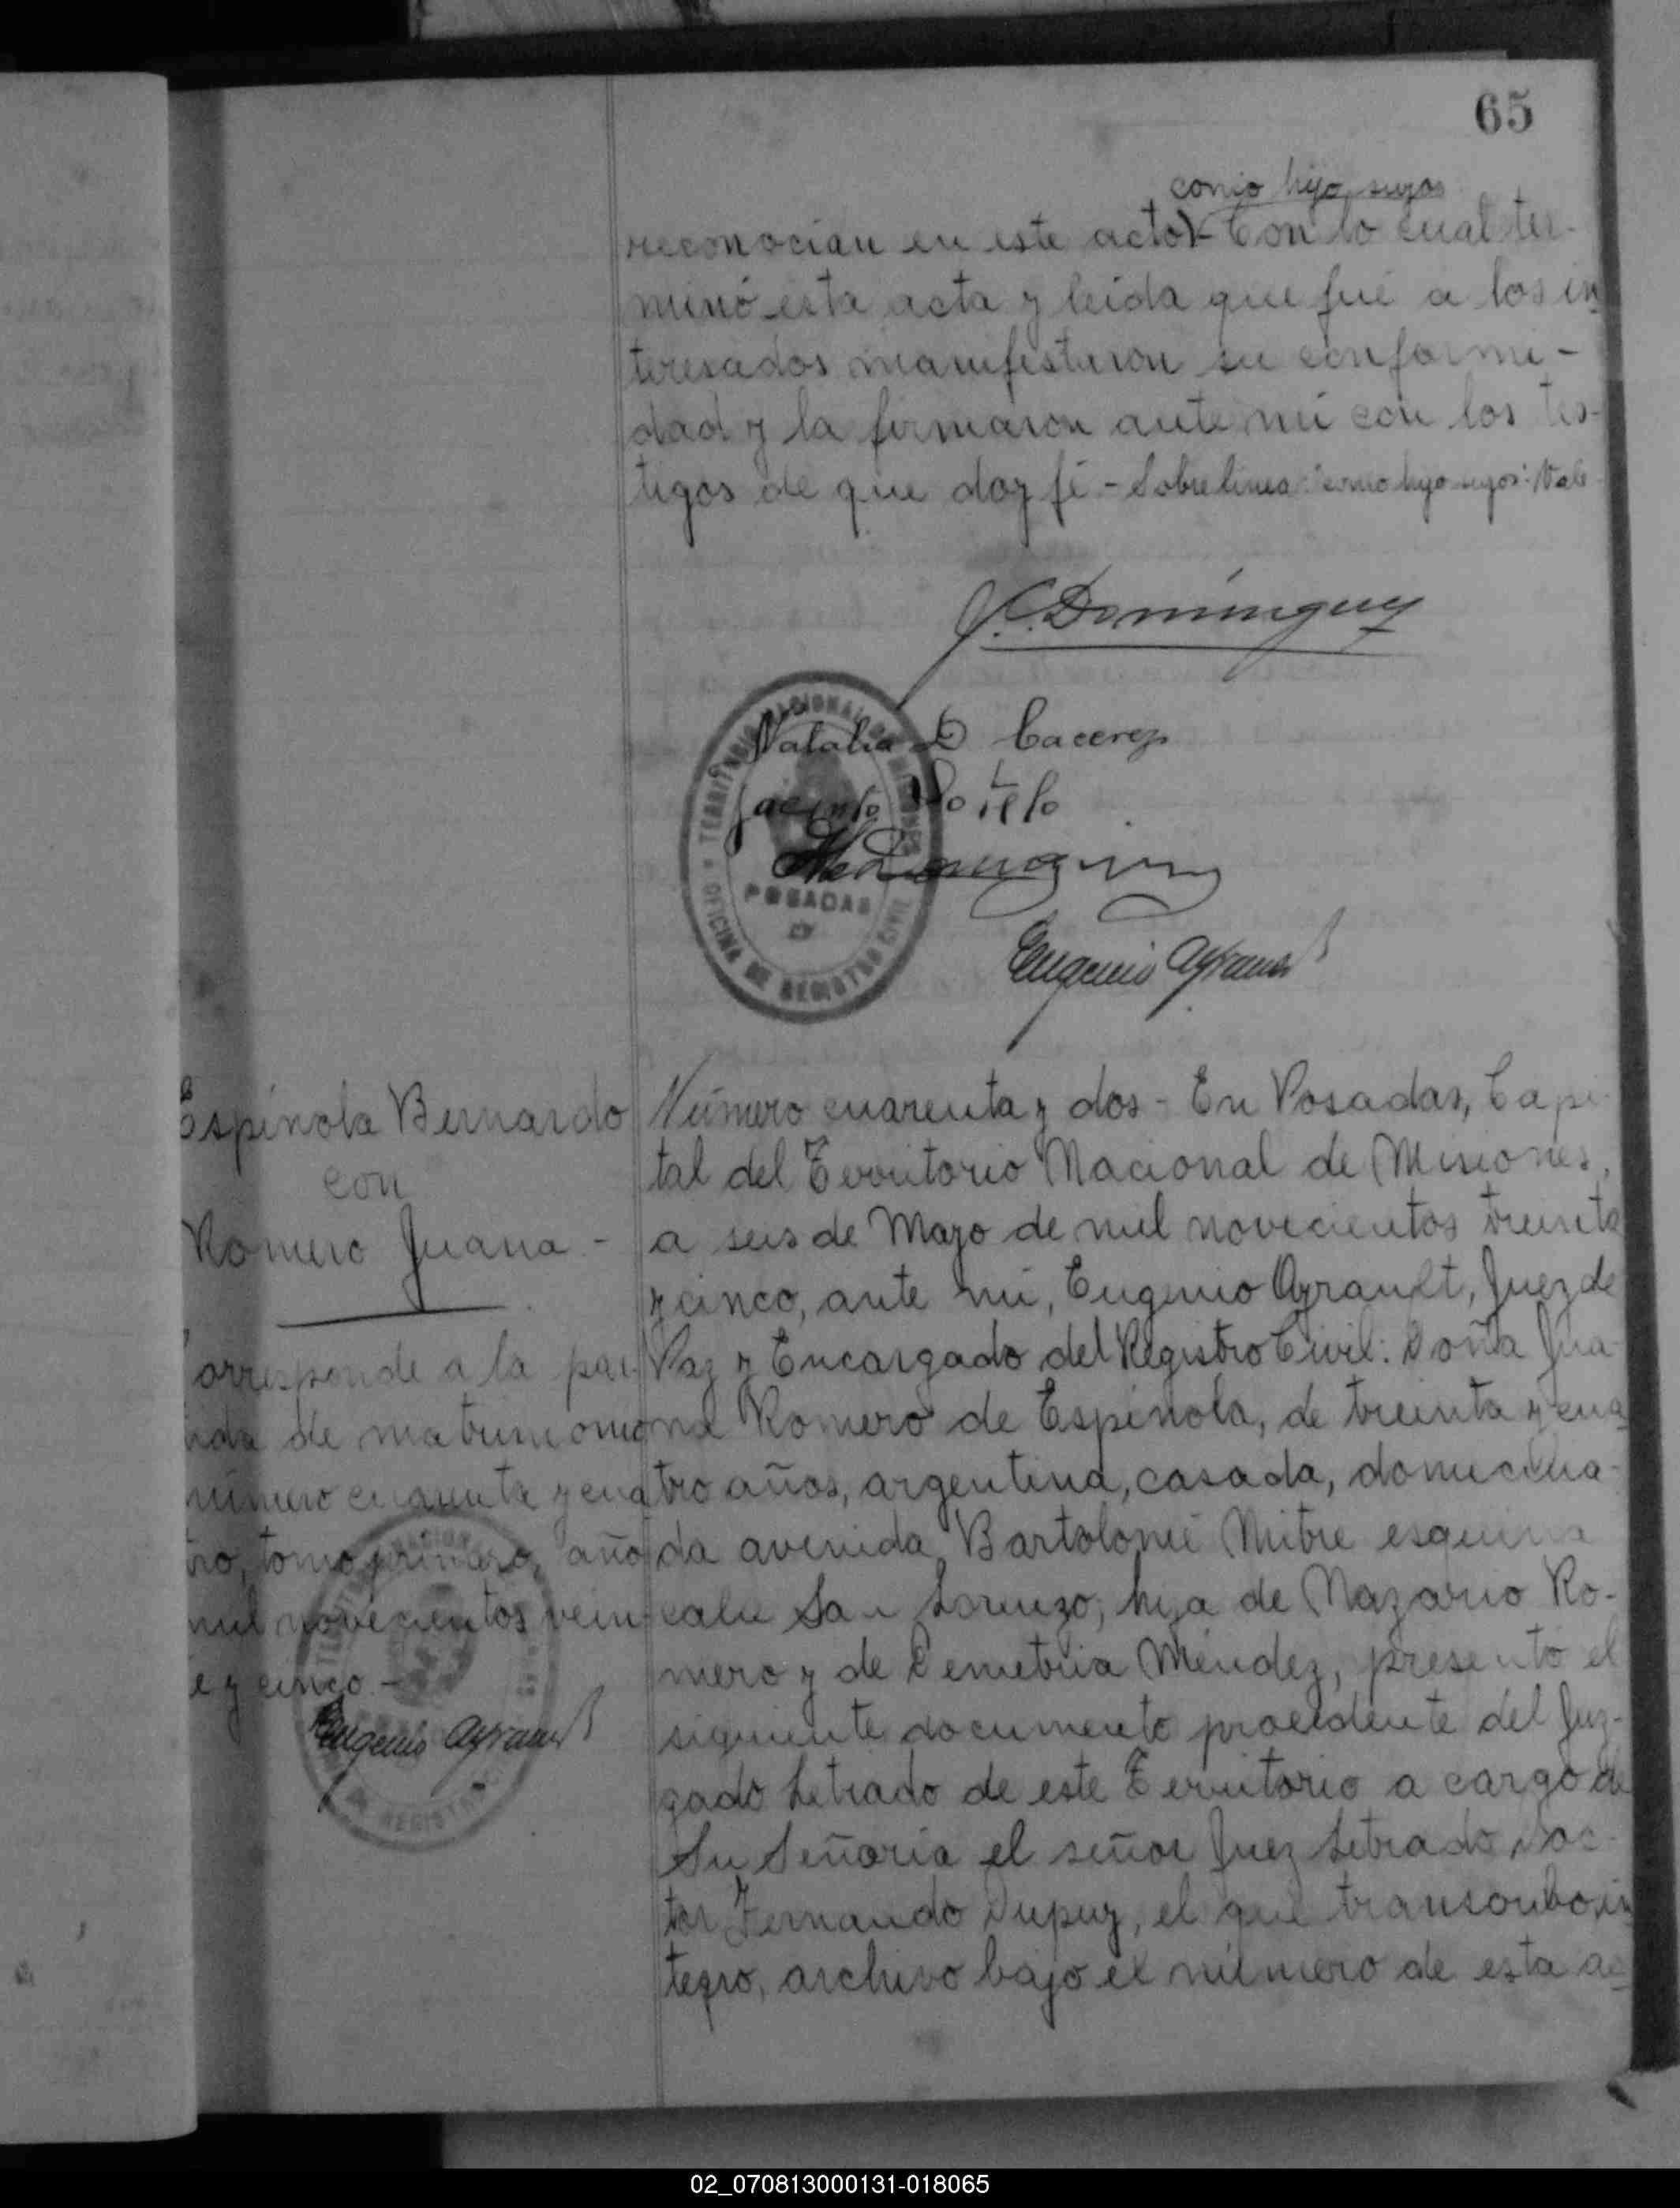 65
como hijo suyos
reconocian en este acto - Con lo cual ter-
minó esta acta y leida que fué a los in
teresados manifestaron su conformi-
dad y la firmaron ante mi con los tes-
tigos de que doy fé - Sobrelinea: "como hijo suyos": Vale
J. C. Dominguez
Natalia D Cacerez
Jacinto Sotelo
Eugenio Ayrault
TERRITORIO NACIONAL DE MISIONES
POSADAS
OFICINA DE REGISTRO CIVIL
Espínola Bernardo
con
Romero Juana -
orresponde a la par
tida de matrimonio
número cuarenta y cua
tro, tomo primero, año
mil novecientos vein
te y cinco -
Eugenio Ayrault
REGISTRO
Número cuarenta y dos - En Posadas, Capi-
tal del Territorio Nacional de Misiones,
a seis de Mayo de mil novecientos treinta
y cinco, ante mi, Eugenio Ayrault, Juez de
Paz y Encargado del Registro Civil: Doña Jua-
na Romero de Espínola, de treinta y cua
tro años, argentina, casada, domicilia-
da avenida Bartolomé Mitre esquina
calle San Lorenzo, hija de Nazario Ro-
mero y de Demetria Méndez, presentó el
siguiente documento procedente del Juz-
gado Letrado de este Territorio a cargo de
Su Señoria el señor Juez Letrado Doc-
tor Fernando Dupuy, el que transcribo in
tegro, archivo bajo el número de esta ac
02_070813000131-018065